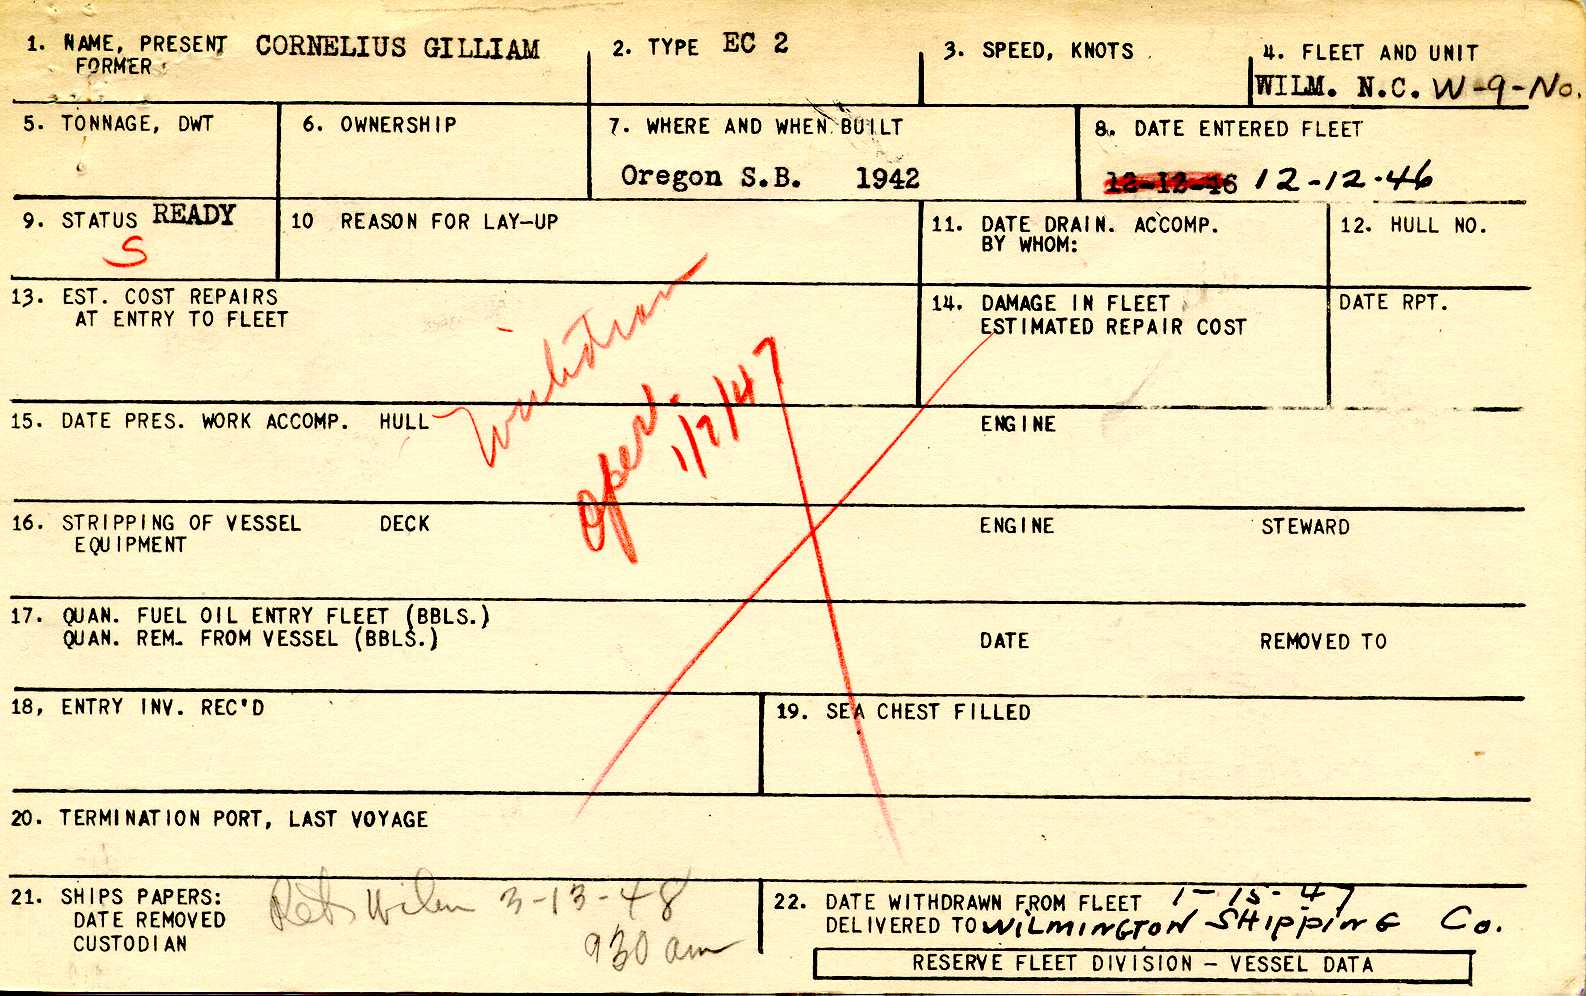 1. NAME, PRESENT CORNELIUS GILLIAM
FORMER
2. TYPE EC 2
3. SPEED, KNOTS
4. FLEET AND UNIT
WILM. N.C. W-9-No.
5. TONNAGE, DWT
6. OWNERSHIP
7. WHERE AND WHEN BUILT
Oregon S.B. 1942
8. DATE ENTERED FLEET
12-12-46 12-12-46
9. STATUS READY
S
10 REASON FOR LAY-UP
11. DATE DRAIN. ACCOMP.
BY WHOM:
12. HULL NO.
13. EST. COST REPAIRS
AT ENTRY TO FLEET
14. DAMAGE IN FLEET
ESTIMATED REPAIR COST
DATE RPT.
Withdrawn
Oper.
1/7/47
15. DATE PRES. WORK ACCOMP. HULL
ENGINE
16. STRIPPING OF VESSEL DECK
EQUIPMENT
ENGINE
STEWARD
17. QUAN. FUEL OIL ENTRY FLEET (BBLS.)
QUAN. REM. FROM VESSEL (BBLS.)
DATE
REMOVED TO
18, ENTRY INV. REC'D
19. SEA CHEST FILLED
20. TERMINATION PORT, LAST VOYAGE
21. SHIPS PAPERS:
DATE REMOVED
CUSTODIAN
Ret Wilm 3-13-48
930 am
22. DATE WITHDRAWN FROM FLEET 1-15-47
DELIVERED TO WILMINGTON SHIPPING Co.
RESERVE FLEET DIVISION - VESSEL DATA